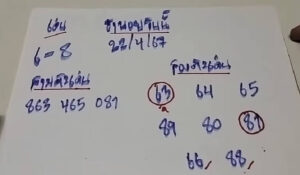 เด่น
6 = 8
22/4/67
สามตัวเด่น
863 465 081
สองตัวเด่น
63 64 65
89 80 81
66, 88,